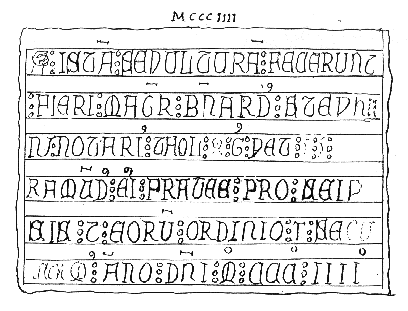 MCCCIIII
ISTA:SEPULTURA:FECERUNT
:FIERI:MAGR:BNARD:STEPHA
NI:NOTARI:THOLI: :G:PET
RAMUD:EI:FRATES:PRO:SEIP
SIS:T:EORU:ORDINIO:T:SECU
ANO:DNI:M:CCC:IIII